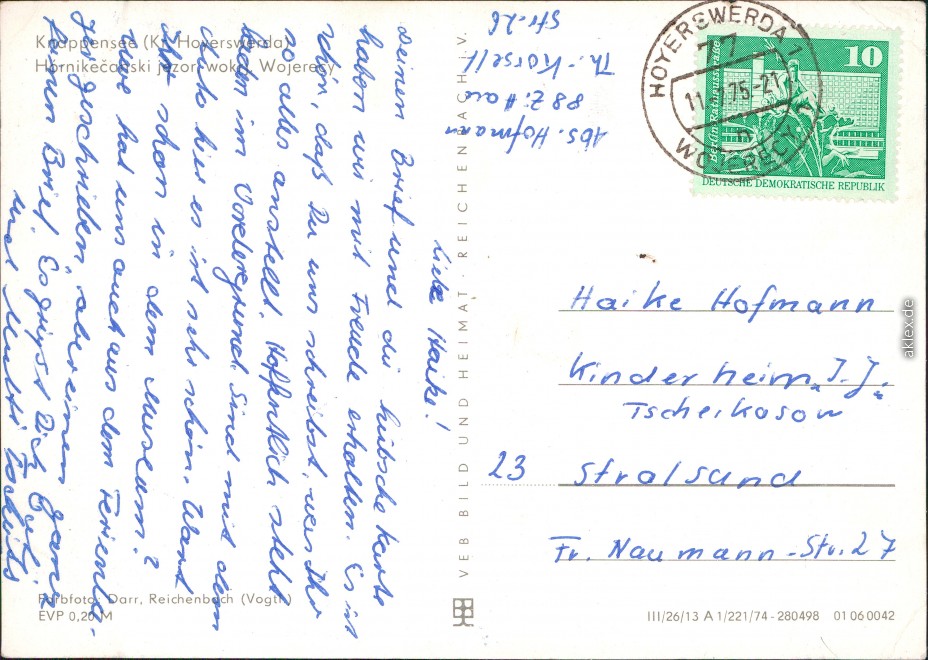 Knappensee (Kr. Hoyerswerda)
Hórnikečanski jězor, wokr. Wojerecy
Abs. Hofmann
88 Zittau
Th.-Körsell
Str. 26
Liebe Haike!
Deinen Brief und die hübsche Karte
haben wir mit Freude erhalten. Es ist
schön, daß Du uns schreibst, was Ihr
so alles anstellt. Hoffentlich steht
baden im Vordergrund. Sind mit dem
hier es ist sehr schön. Warst
Du schon in dem Museum?
hat uns auch aus dem Ferienla-
ger geschrieben, aber einen
Brief. Es grüßt Dich ganz
und Mutti
VEB BILD UND HEIMAT · REICHENBACH I. V.
HOYERSWERDA 1
77
11. 75-21
n
WOJERECY
Berlin, Rathausstraße
10
DEUTSCHE DEMOKRATISCHE REPUBLIK
Haike Hofmann
Kinderheim "J. J.
Tscheikasow"
23 Stralsund
Fr. Naumann-Str. 27
Farbfoto: Darr, Reichenbach (Vogtl.)
EVP 0,20 M
III/26/13 A 1/221/74 - 280498 01 06 0042
aklex.de